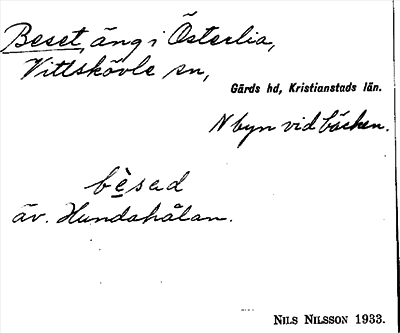 Beset, äng i Österlia,
Vittskövle sn,
Gärds hd, Kristianstads län.
N byn vid bäcken.
bèsad
äv. Hundahålan.
NILS NILSSON 1933.